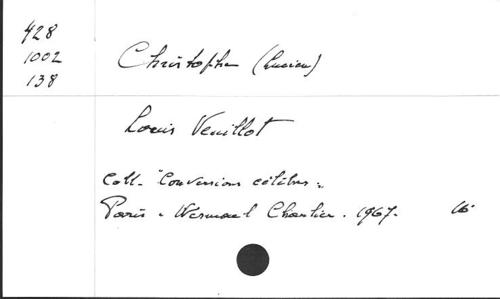 428
1002
138
Christophe (Lucien)
Louis Veuillot
Coll. "Conversions célèbres"
Paris. Wesmael Charlier. 1967. 16°